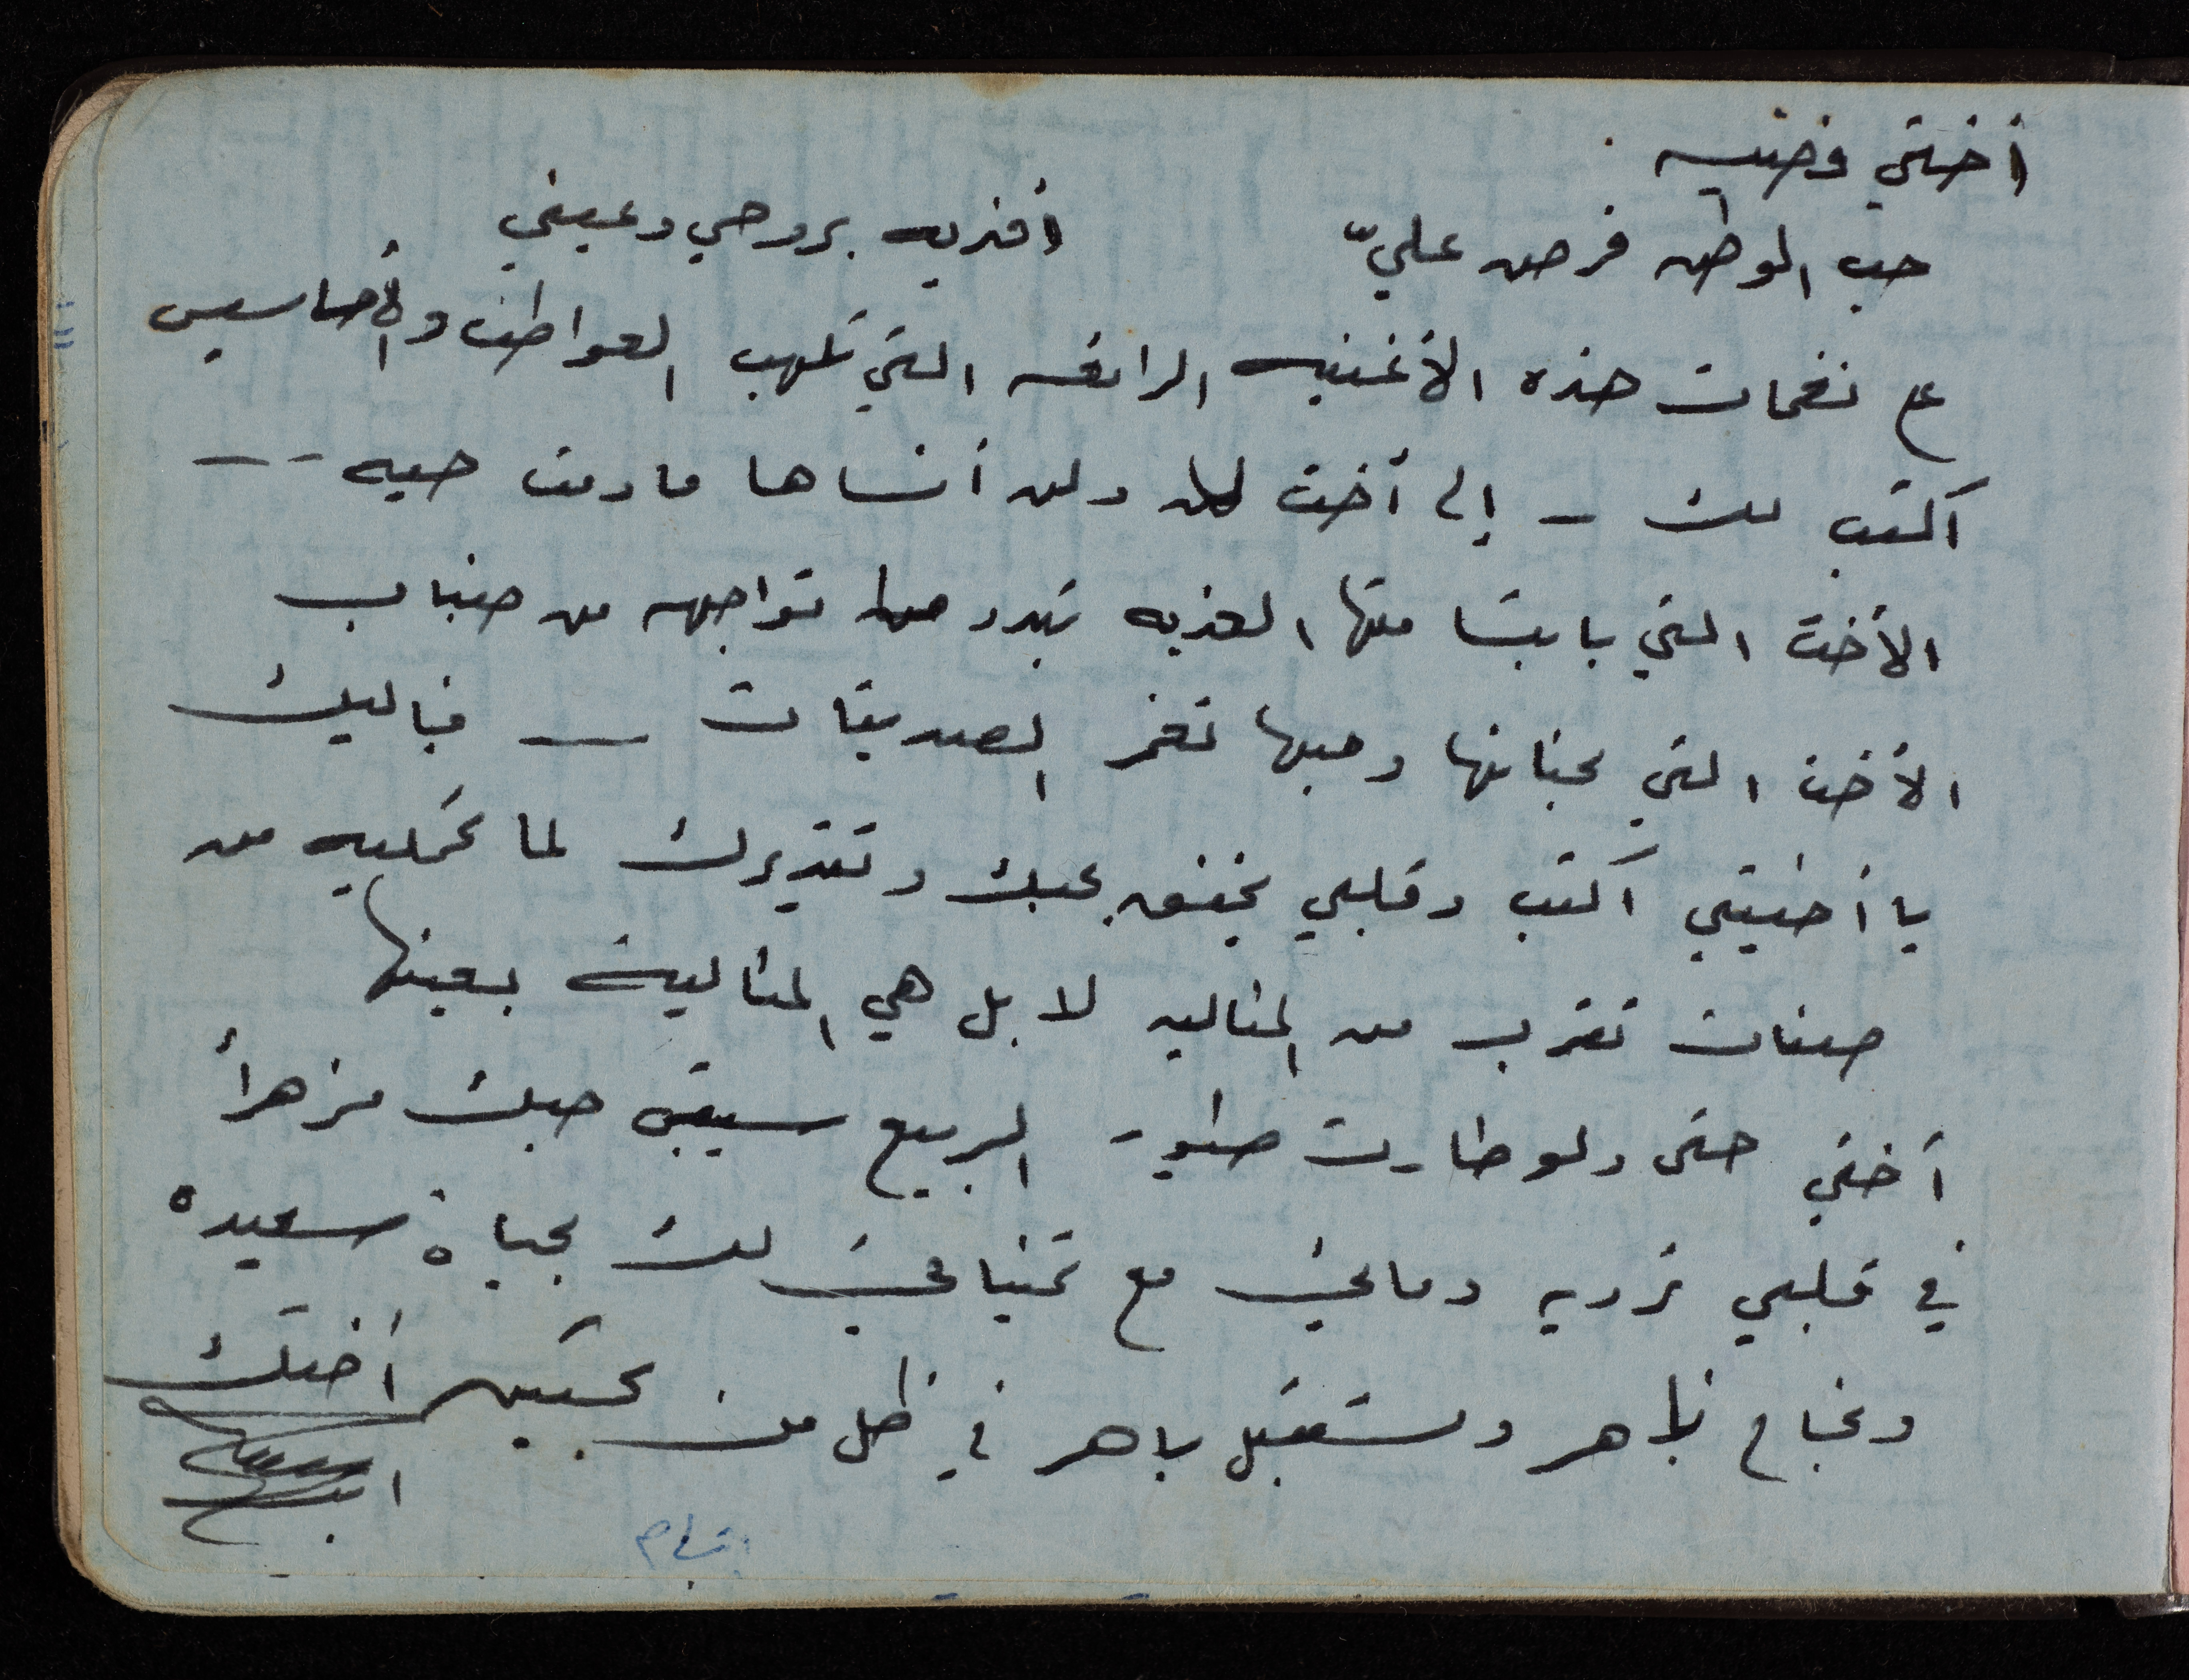 أختي وضيه
حب الوطن فرض عليّ      أفديه بروحي وعيني
على نغمات هذه الأغنيه الرائعه التي تلهب العواطف والأحاسيس
أكتب لك - إلى أخت لم ولن أنساها ما دمت حيه --
الأخت التي بابتسامتها العذبه تبدد ما تواجهه من ضباب
الأخت التي بحنانها وحبها تغمر الصديقات — فإليك
يا أخيتي أكتب وقلبي يخفق بحبك وتقديرك لما تحمليه من
صفات تقرب من المثاليه لا بل هي المثالية بعينها
أختي حتى ولو طارت طيور الربيع سيبقى حبك مزهراً
في قلبي ترويه دمائي مع تمنياتي لك بحياة سعيده
ونجاح باهر ومستقبل باهر في ظل من تحبين أختك
ابتسام
ابتسام